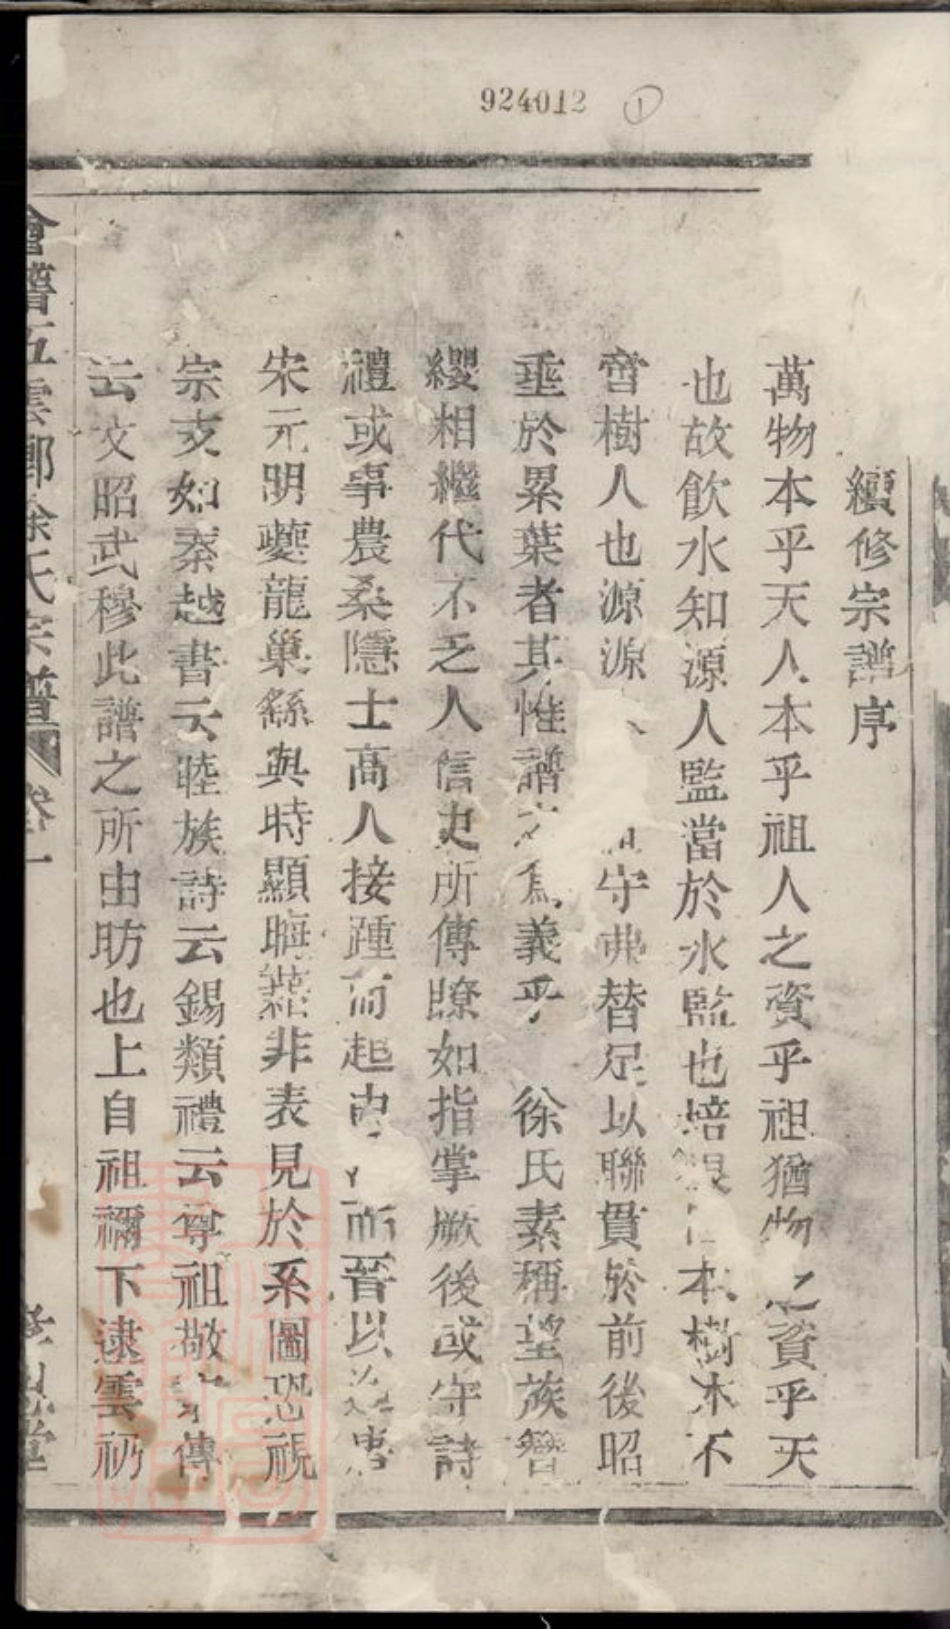 924012 ①
續修宗譜序
萬物本乎天人本乎祖人之資乎祖猶物之資乎天
也故飲水知源人監當於水監也培根 本樹木不
啻樹人也源源 守弗替足以聯貫於前後昭
垂於累葉者其惟譜 為義乎 徐氏素稱望族簪
纓相繼代不乏人信史所傳瞭如指掌厥後或守詩
禮或事農桑隱士高人接踵而起由 而晉以 唐
宋元明夔龍巢繇與時顯晦 非表見於系圖恐視
宗支如秦越書云睦族詩云錫類禮云尊祖敬 傳
云文昭武穆此譜之所由昉也上自祖禰下逮雲礽
會譜五雲鄉徐氏宗譜 卷一
堂